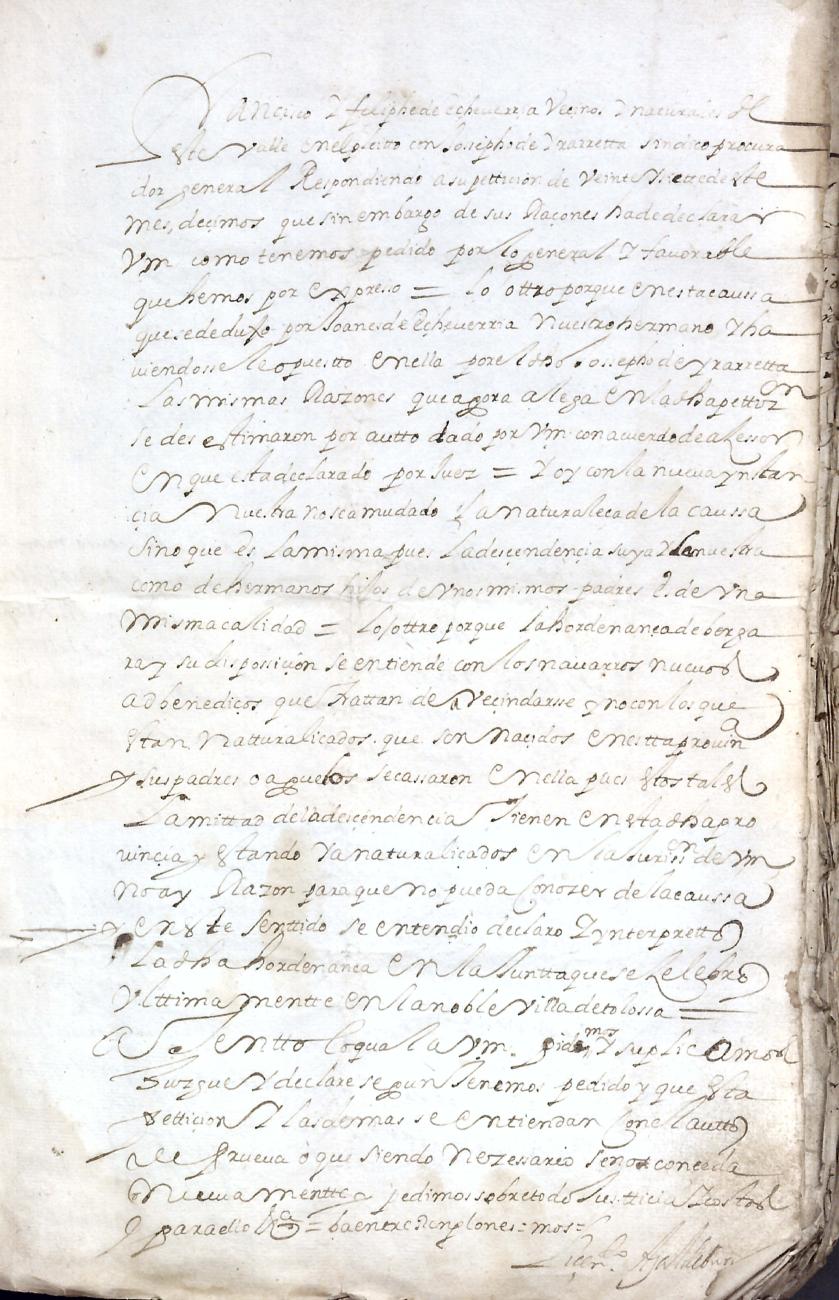 Francisco Y feliphe de Echeverria Veçinos Y naturales de
este Valle en el pleitto con Josepho de Yrarretta sindico procura
dor general Respondiendo a su pettiçion de Veinte Y siette de este
mes, decimos que sin embargo de sus Raçones ha de declarar
Vm como tenemos pedido por lo general Y favorable
que hemos por expreso = Lo ottro porque en esta caussa
que se deduxo por Joanes de Echeverria Nuestro hermano Y ha
viendosele opuestto en ella por el dho Josepho de yrarretta
Las mismas Razones que agora alega en la dha pettiçon
se desestimaron por autto dado por Vm con acuerdo de assesor
En que esta declarado por Juez = Y oy con la nueva ynstan
çia Nuestra no se a mudado La naturaleça de la caussa
sino que es La misma pues La descendencia suya Y la nuestra
como de hermanos hijos de Vnos mismos padres es de Vna
Misma calidad = Lo ottro porque la hordenança de berga
ra y su disposiçión se entiende con los navarros nuevos
adbenediços que trattan de aveçindarsse y no con los que
estan Natturaliçados que son Naçidos en estta provinª
y sus padres o aguelos se cassaron en ella pues estos tales
La mittad de la descendencia tienen en esta dha pro
vinçia y estando Ya naturaliçados en la Jurisson de Vm
No ay Razon para que no pueda Conozer de la caussa
y en este senttido se entendio declaro Y ynterpretto
La dha hordenança en la Juntta que se Zelebro
Vlttimamentte en la noble Villa de tolossa =
Attentto lo qual a Vm. pidimos Y suplicamos
Juzgue Y declare segun Tenemos pedido y que esta
pettiçion Y las demas se entiendan Con el autto
de prueva o que siendo Nezessario se nos conceda
Nuevamentte y pedimos sobre todo Justticia Y costas
y para ello &a = ba entre Renglones = mos =
Liçendo